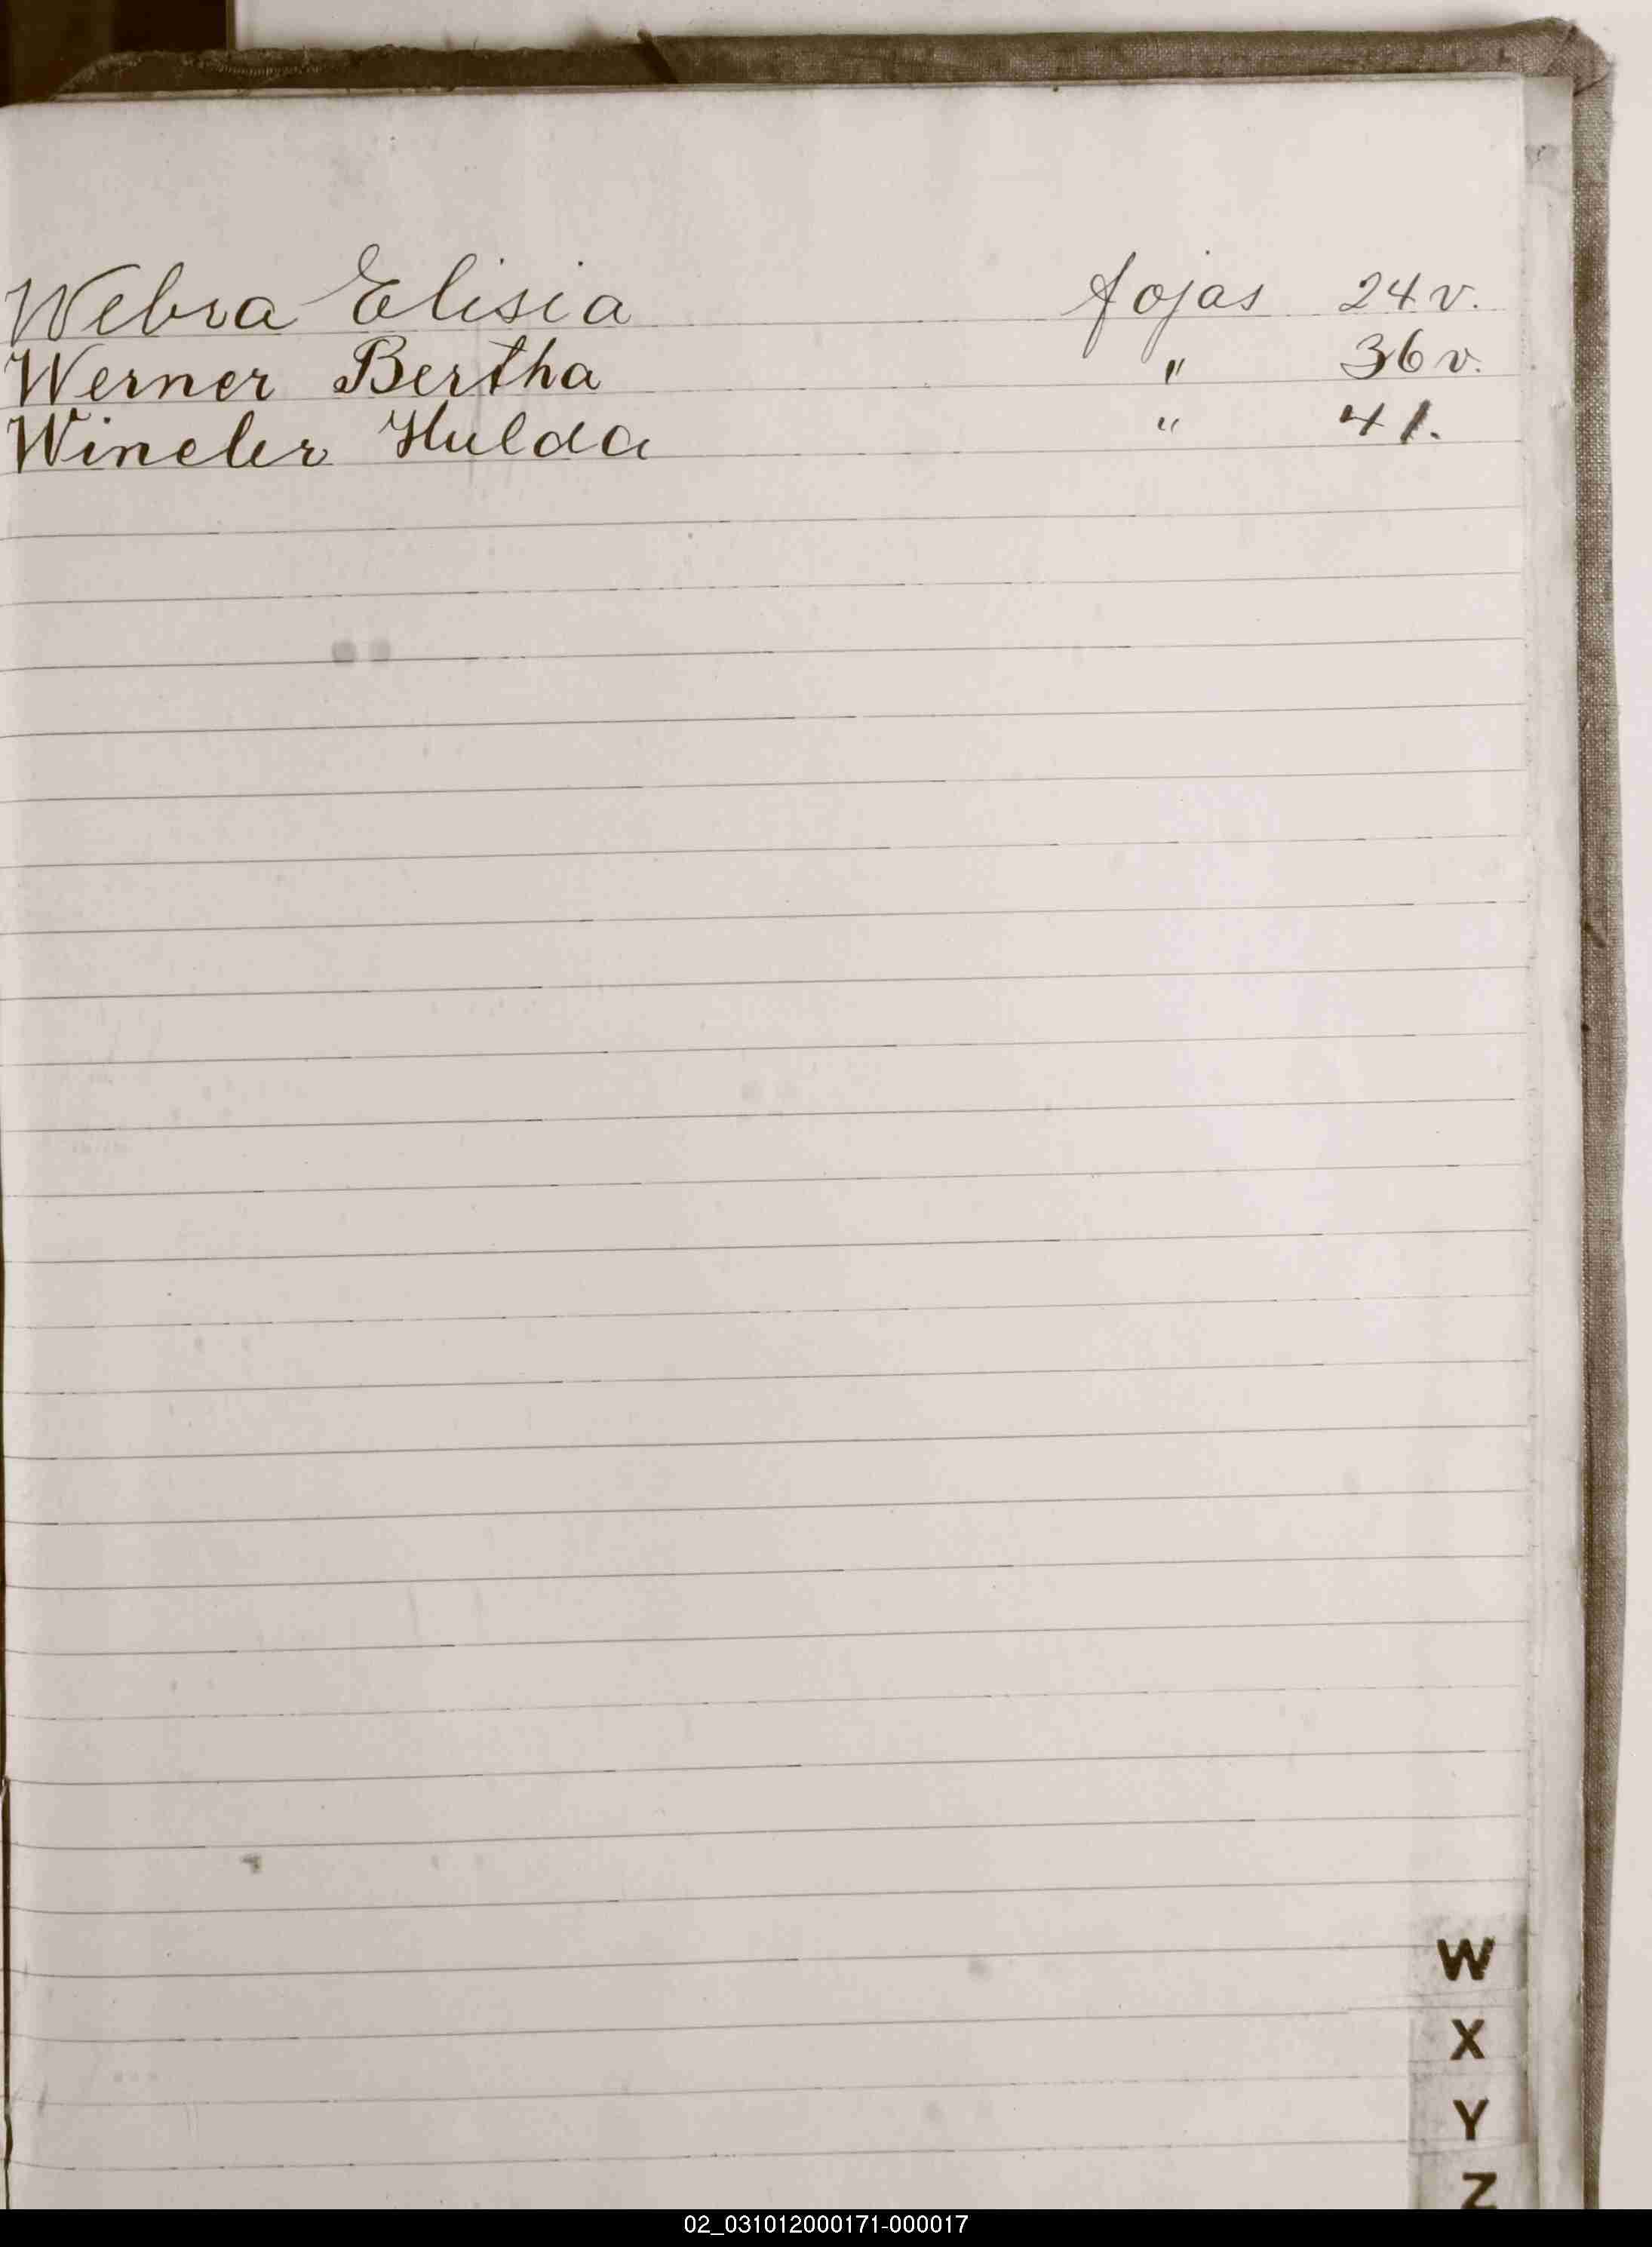 Webra Elisia fojas 24 v.
Werner Bertha " 36 v.
Wincler Hulda " 41.
W
X
Y
Z
02_031012000171-000017